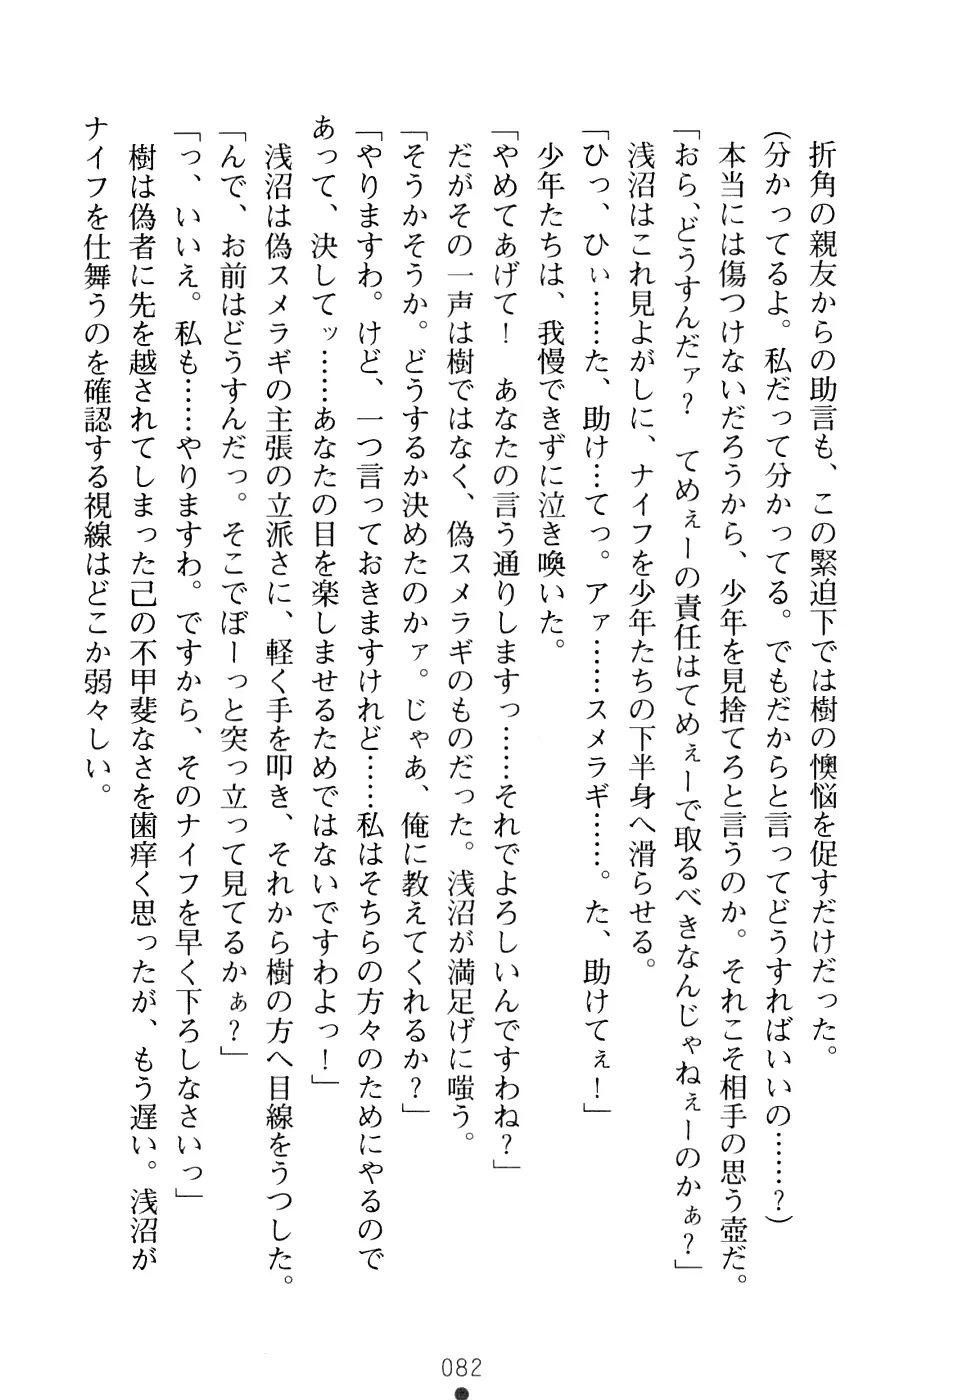 折角の親友からの助言も、この緊迫下では樹の懊悩を促すだけだった。
(分かってるよ。私だって分かってる。でもだからと言ってどうすればいいの……?)
本当には傷つけないだろうから、少年を見捨てろと言うのか。それこそ相手の思う壺だ。
「おら、どうすんだァ?　てめぇーの責任はてめぇーで取るべきなんじゃねぇーのかぁ?」
浅沼はこれ見よがしに、ナイフを少年たちの下半身へ滑らせる。
「ひっ、ひぃ……た、助け…てっ。アァ……スメラギ……。た、助けてぇ!」
少年たちは、我慢できずに泣き喚いた。
「やめてあげて!　あなたの言う通りしますっ……それでよろしいんですわね?」
だがその一声は樹ではなく、偽スメラギのものだった。浅沼が満足げに嗤う。
「そうかそうか。どうするか決めたのかァ。じゃあ、俺に教えてくれるか?」
「やりますわ。けど、一つ言っておきますけれど……私はそちらの方々のためにやるので
あって、決してッ……あなたの目を楽しませるためではないですわよっ!」
浅沼は偽スメラギの主張の立派さに、軽く手を叩き、それから樹の方へ目線をうつした。
「んで、お前はどうすんだっ。そこでぼーっと突っ立って見てるかぁ?」
「っ、いいえ。私も……やりますわ。ですから、そのナイフを早く下ろしなさいっ」
樹は偽者に先を越されてしまった己の不甲斐なさを歯痒く思ったが、もう遅い。浅沼が
ナイフを仕舞うのを確認する視線はどこか弱々しい。
082